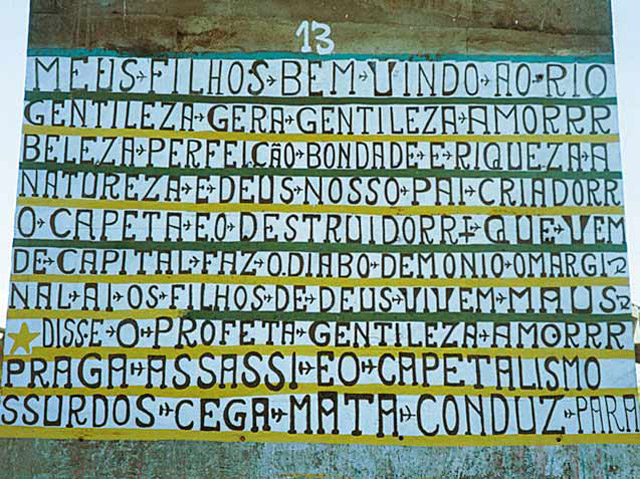 13
MEUS FILHOS BEM VINDO AO RIO
GENTILEZA GERA GENTILEZA AMORRR
BELEZA PERFEIÇÃO BONDADE E RIQUEZA A
NATUREZA E DEUS NOSSO PAI CRIADORR
O CAPETA E O DESTRUIDORR QUE VEM
DE CAPITAL FAZ O DIABO DEMONIO O MARGI
NAL AI OS FILHOS DE DEUS VIVEM MAUS
DISSE O PROFETA GENTILEZA AMORRR
PRAGA ASSASSI E O CAPETALISMO
SSURDOS CEGA MATA CONDUZ PARA